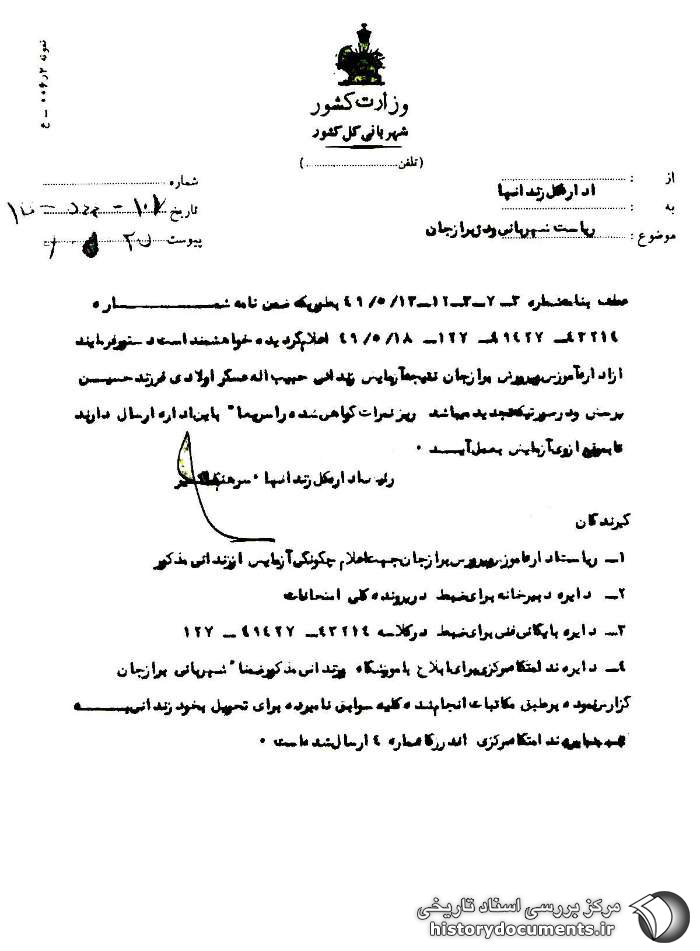 نمونه ۲ر۰۰۶ ـ ع
وزارت کشور
شهربانی کل کشور
(تلفن ..................)
از : اداره کل زندانها
به :
موضوع : ریاست شهربانی ودژ برازجان
شماره
تاریخ
پیوست
عطف بنامه شماره ۳ـ۷ـ۳ـ۱۲ـ۴۹/۵/۱۳ بطوریکه ضمن نامه شماره
۴۳۲۱۴ـ ۴۹۴۲۷ـ ۱۲۷ـ ۴۹/۵/۱۸ اعلام گردیده خواهشمند است دستور فرمایند
از اداره آموزش پرورش برازجان نتیجه آزمایش زندانی حبیب اله عسکر اولادی فرزند حسین
پرسش ودر صورتیکه تجدید میباشد ریز نمرات گواهی شده را سریعا" باین اداره ارسال دارند
تا بموقع از وی آزمایش بعمل آید .
رئیس اداره کل زندانها . سرهنگ
گیرندگان
۱ـ ریاست اداره آموزش پرورش برازجان جهت اعلام چگونگی آزمایش از زندانی مذکور
۲ـ دایره دبیرخانه برای ضبط در پرونده کلی امتحانات
۳ـ دایره بایگانی فنی برای ضبط در کلاسه ۴۳۲۱۴ـ ۴۹۴۲۷ـ ۱۲۷
۴ـ دایره ندامتگاه مرکزی برای ابلاغ بآموزشگاه بزندانی مذکور ضمنا" شهربانی برازجان
گزارش نموده برطبق مکاتبات انجام شده کلیه سوابق نامبرده برای تحویل بخود زندانی به
ندامتگاه مرکزی شماره ۴ ارسال شده است .
مرکز بررسی اسناد تاریخی
historydocuments.ir